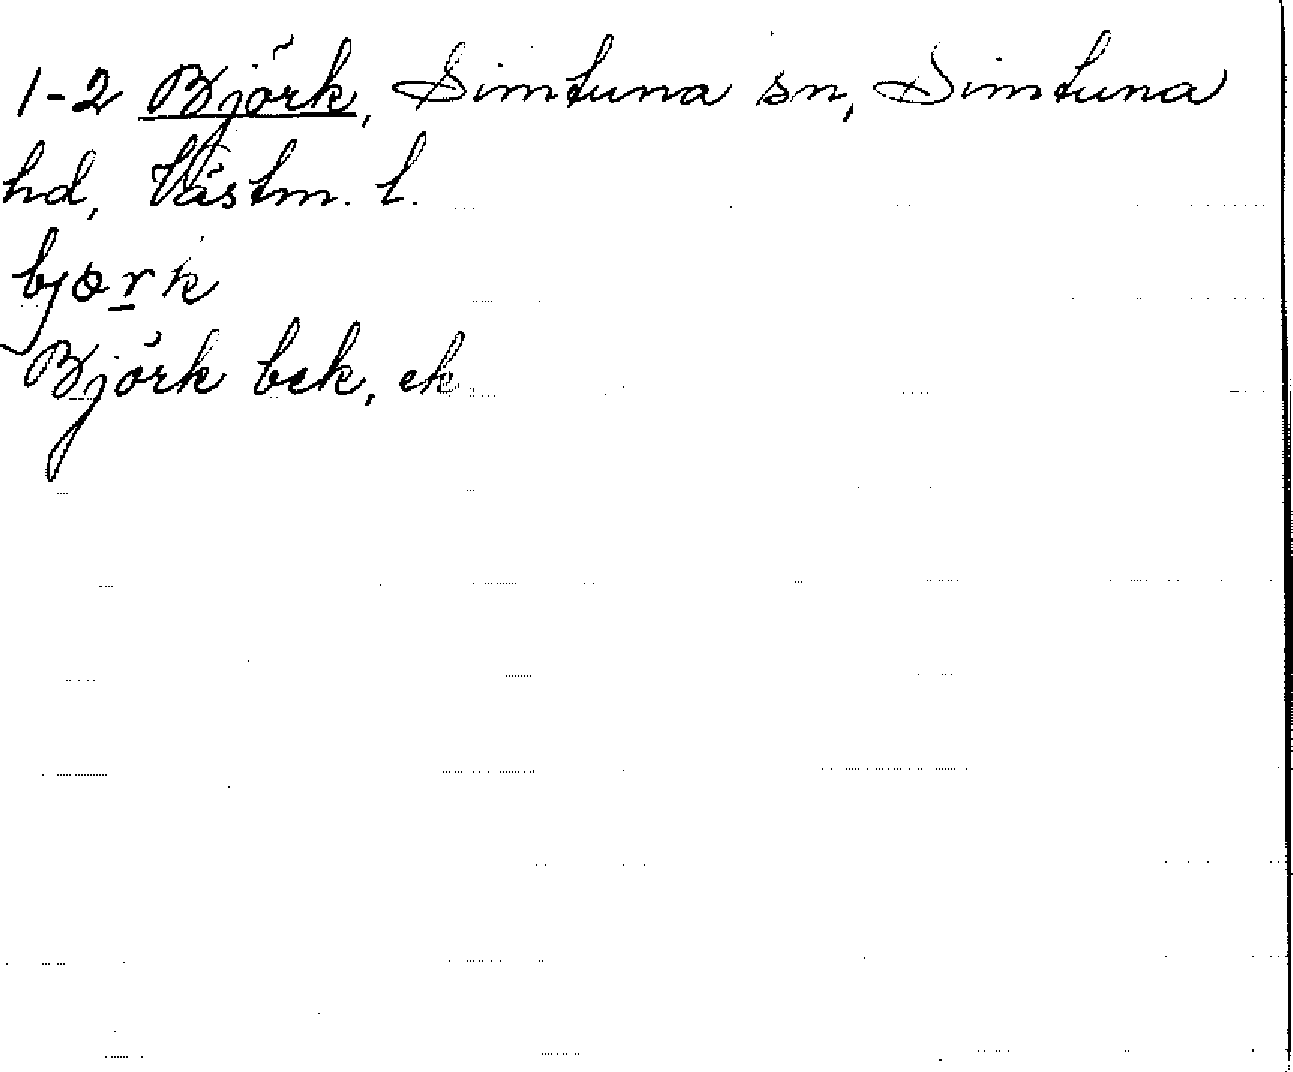 1-2 Björk, Simtuna sn, Simtuna
hd, Västm. l.
bjørk
Björk bek, ek